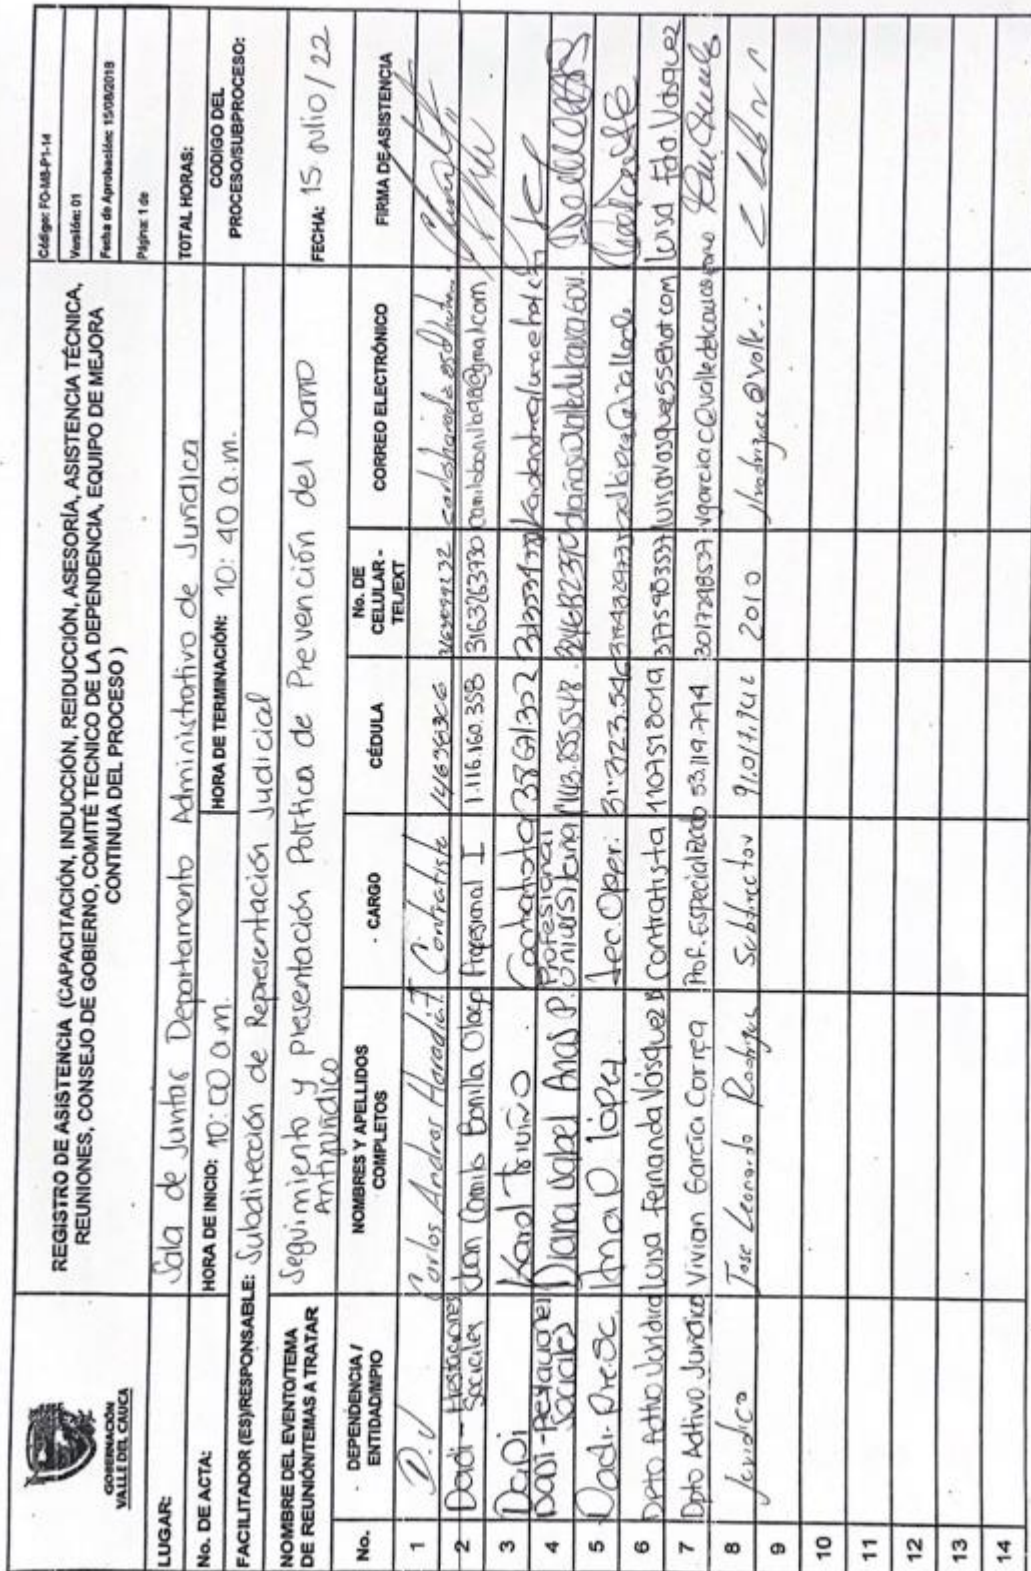 GOBERNACIÓN
VALLE DEL CAUCA
REGISTRO DE ASISTENCIA (CAPACITACIÓN, INDUCCIÓN, REIDUCCIÓN, ASESORÍA, ASISTENCIA TÉCNICA,
REUNIONES, CONSEJO DE GOBIERNO, COMITÉ TECNICO DE LA DEPENDENCIA, EQUIPO DE MEJORA
CONTINUA DEL PROCESO )
Código: FO-M8-P1-14
Versión: 01
Fecha de Aprobación: 15/08/2018
Página: 1 de
LUGAR: Sala de Juntas Departamento Administrativo de Jurídica
TOTAL HORAS:
No. DE ACTA:
HORA DE INICIO: 10:00 a.m.
HORA DE TERMINACIÓN: 10:40 a.m.
CODIGO DEL
PROCESO/SUBPROCESO:
FACILITADOR (ES)/RESPONSABLE: Subdirección de Representación Judicial
NOMBRE DEL EVENTO/TEMA
DE REUNIÓN/TEMAS A TRATAR
Seguimiento y presentación Política de Prevención del Daño
Antijurídico
FECHA: 15 julio/22
No.
DEPENDENCIA /
ENTIDAD/MPIO
NOMBRES Y APELIDOS
COMPLETOS
CARGO
CÉDULA
No. DE
CELULAR -
TEL/EXT
CORREO ELECTRÓNICO
FIRMA DE ASISTENCIA
1 D.J Carlos Andres Contratista
2 Dadi - Prestaciones Sociales Juan Camilo Bonilla Profesional I 1.116.160.358 3163263730 Camilobonilla98@gmail.com
3 DaDi Karol Triviño Contratista
4 DADI - Prestaciones Sociales Diana Isabel Arias P. Profesional Universitaria
5 Dadi. Pre.Sc. Ana D López
6 Dpto Adtivo Jurídica Luisa Fernanda Vásquez B Contratista 1107518019 3175903537 Luisa Fda. Vasquez
7 Dpto Adtivo Jurídico Vivian García Correa Prof. Especializado 53.119.794 3017298537
8 Juridica Jose Leonardo Rodriguez Subdirector 2010
9
10
11
12
13
14